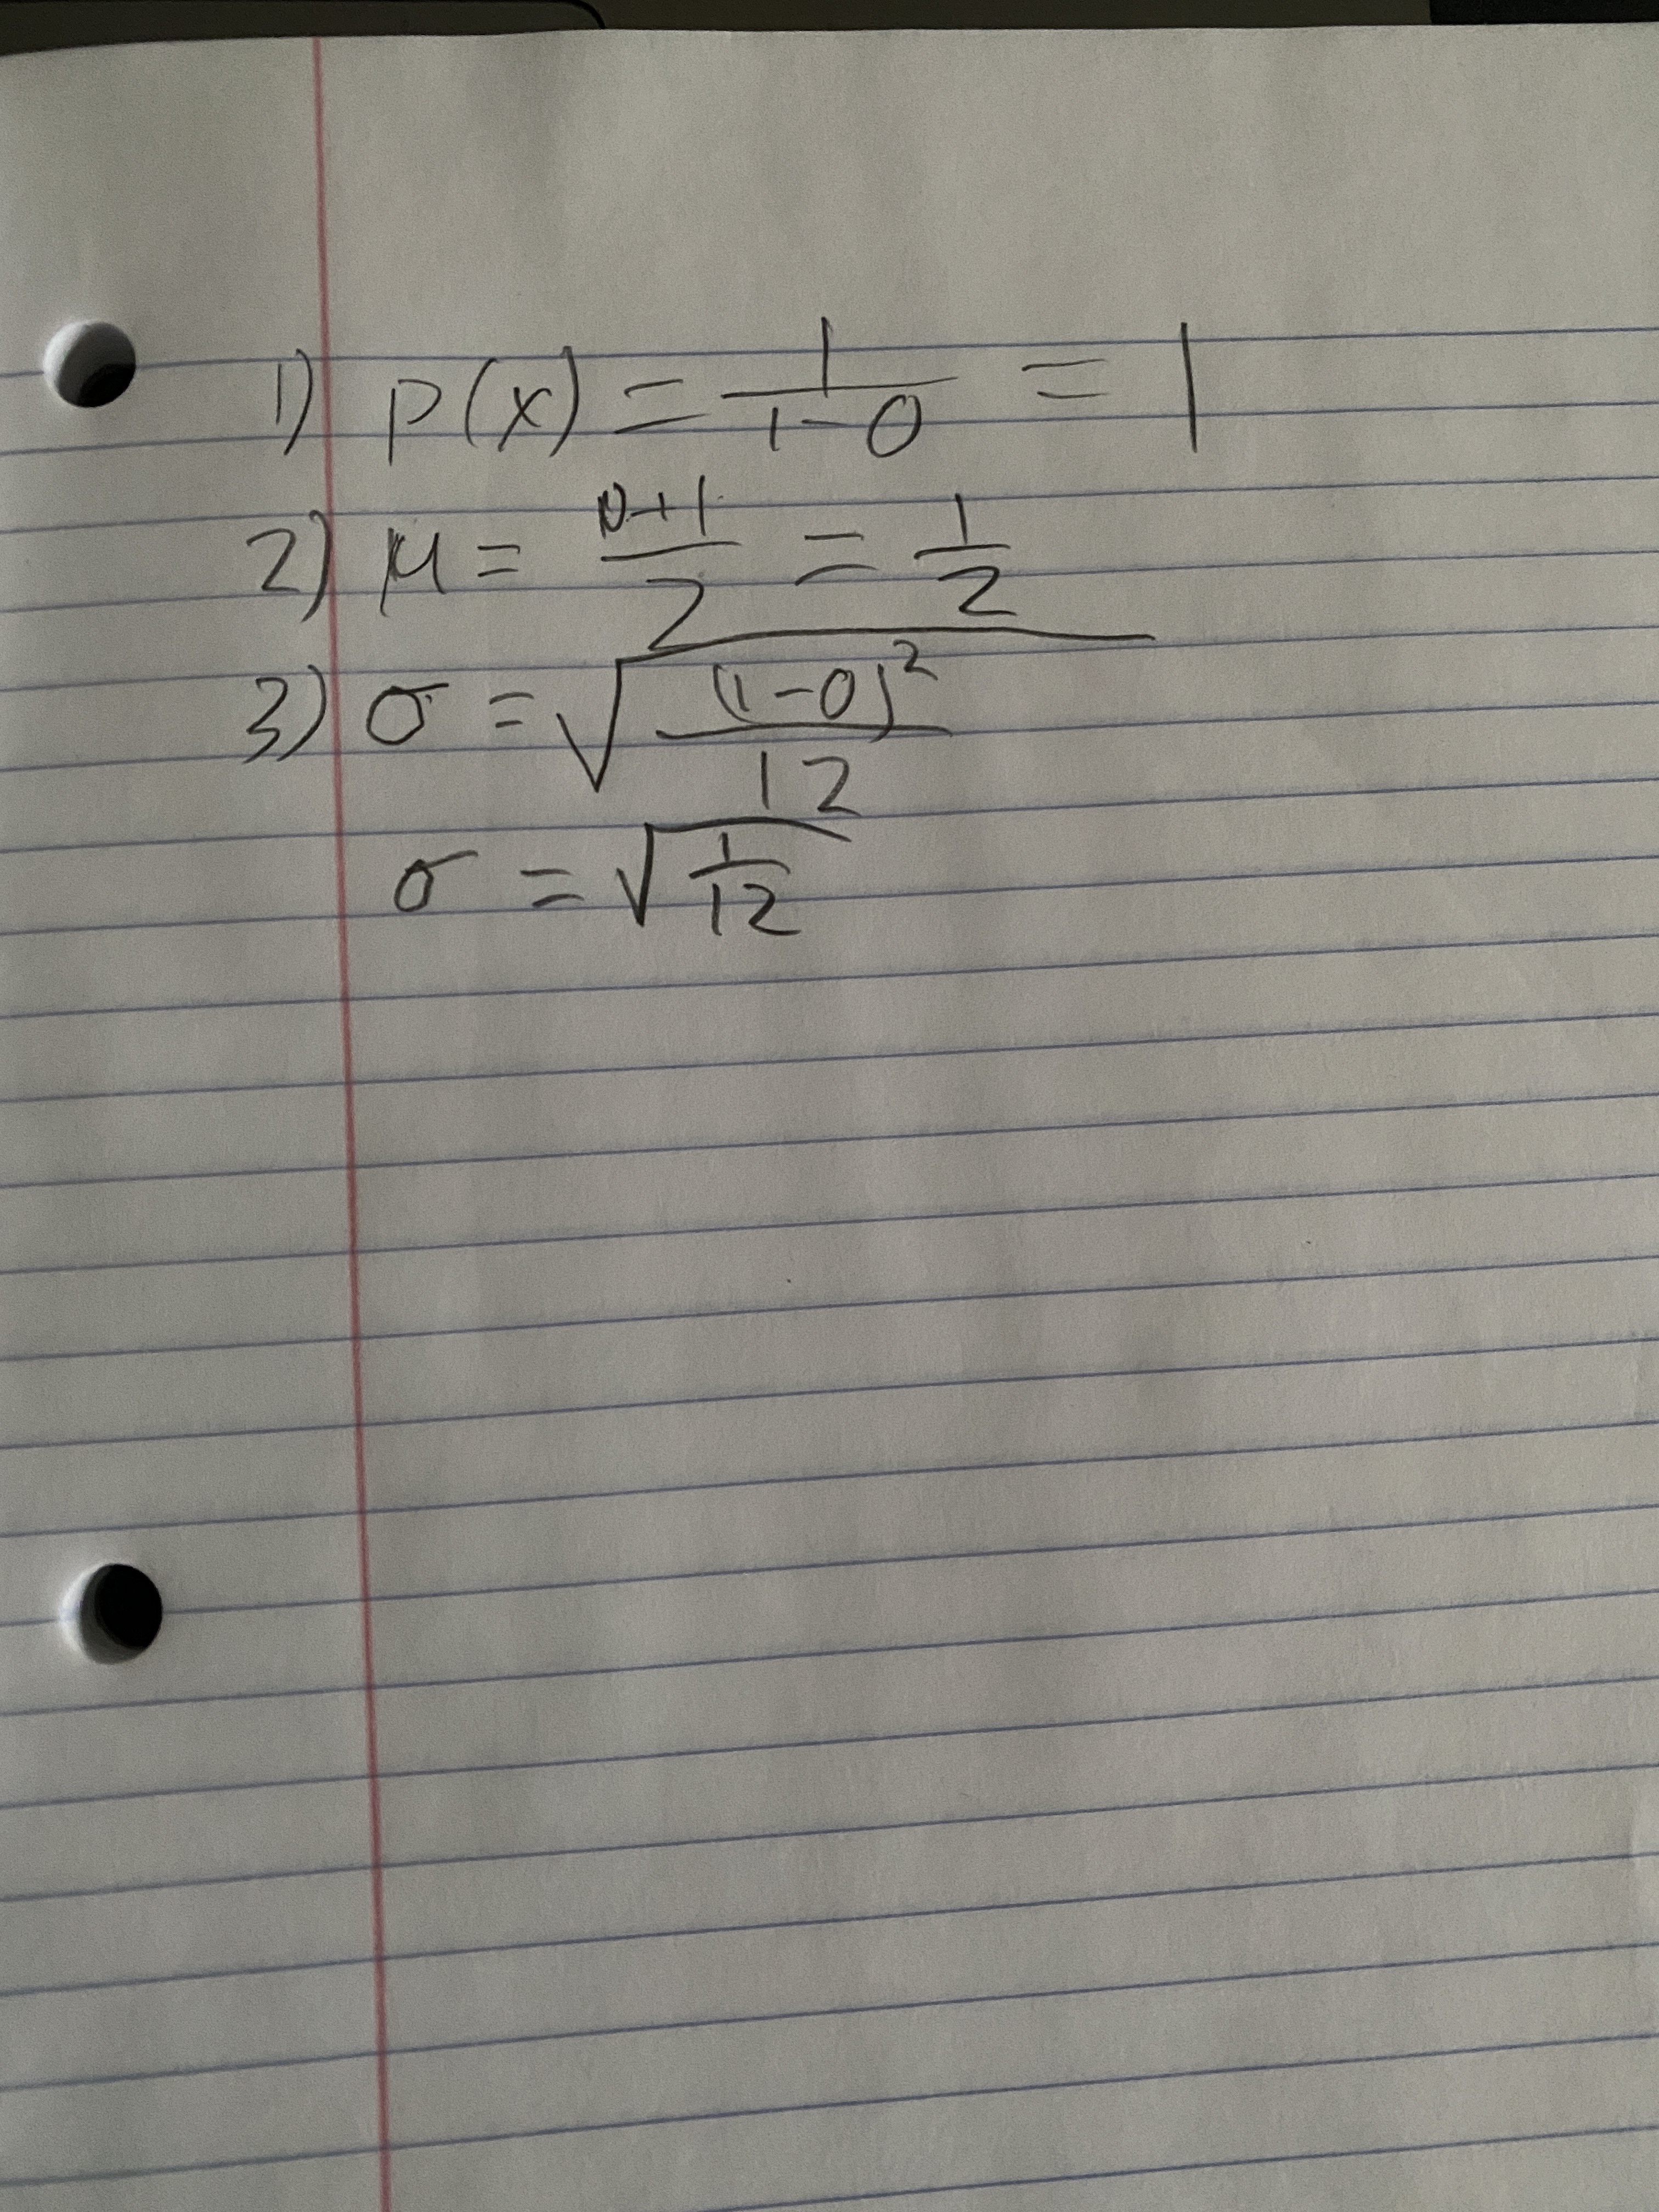 1) p(x) = 1/(1-0) = 1
2) μ = (0+1)/2 = 1/2
3) σ = √((1-0)²/12)
σ = √(1/12)